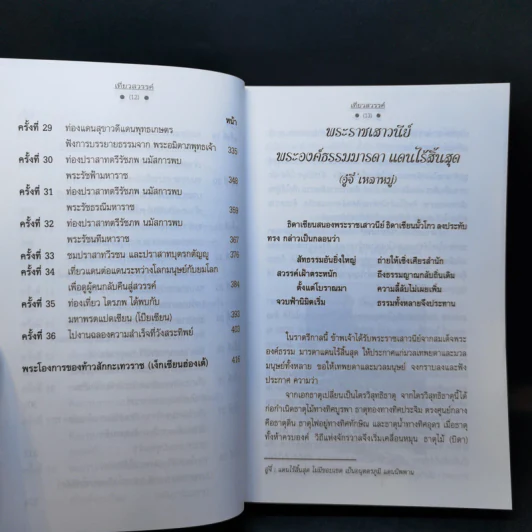 เที่ยวสวรรค์
(12)
หน้า
ครั้งที่ 29 ท่องแดนสุขาวดีแดนพุทธเกษตร
ฟังการบรรยายธรรมจาก พระอมิตาภพุทธเจ้า 335
ครั้งที่ 30 ท่องปราสาทตรีรัชภพ นมัสการพบ
พระรัชฟ้ามหาราช 348
ครั้งที่ 31 ท่องปราสาทตรีรัชภพ นมัสการพบ
พระรัชธรณีมหาราช 359
ครั้งที่ 32 ท่องปราสาทตรีรัชภพ นมัสการพบ
พระรัชนทีมหาราช 367
ครั้งที่ 33 ชมปราสาทวีรชน และปราสาทบุตรกตัญญู 376
ครั้งที่ 34 เที่ยวแดนต่อแดนระหว่างโลกมนุษย์กับยมโลก
เพื่อดูผู้คนกลับคืนสู่สวรรค์ 384
ครั้งที่ 35 ท่องเที่ยว ไตรภพ ได้พบกับ
มหาพรตแปดเซียน (โป๊ยเซียน) 393
ครั้งที่ 36 ไปงานฉลองความสำเร็จที่วังสระทิพย์ 403
พระโองการของท้าวสักกะเทวราช (เง็กเซียนฮ่องเต้) 416
เที่ยวสวรรค์
(13)
พระราชเสาวนีย์
พระองค์ธรรมมารดา แดนไร้สิ้นสุด
(อู๋จี๋ เหลาหมู่)
ธิดาเซียนสนองพระราชเสาวนีย์ ธิดาเซียนมั้วโกว ลงประทับ
ทรง กล่าวเป็นกลอนว่า
สัทธรรมอันยิ่งใหญ่ ถ่ายให้เซิ่งเสียรสำนัก
สวรรค์เฝ้าตระหนัก ถึงธรรมญาณกลับถิ่นเดิม
ตั้งแต่โบราณมา ความลี้ลับไม่เลยเพิ่ม
จวบฟ้านิมิตเริ่ม ธรรมทั้งหลายจึงประทาน
ในราตรีกาลนี้ ข้าพเจ้าได้รับพระราชเสาวนีย์จากสมเด็จพระ
องค์ธรรม มารดาแดนไร้สิ้นสุด ให้ประกาศแก่มวลเทพยดาและมวล
มนุษย์ทั้งหลาย ขอให้เทพยดาและมวลมนุษย์ จงกราบลงและฟัง
ประกาศ ความว่า
จากเอกธาตุเปลี่ยนเป็นไตรวิสุทธิธาตุ จากไตรวิสุทธิธาตุนี้ได้
ก่อกำเนิดธาตุไม้ทางทิศบูรพา ธาตุทองทางทิศประจิม ตรงศูนย์กลาง
คือธาตุดิน ธาตุไฟอยู่ทางทิศทักษิณ และธาตุน้ำทางทิศอุดร เมื่อธาตุ
ทั้งห้าครบองค์ วิถีแห่งจักรวาลจึงเริ่มเคลื่อนหมุน ธาตุไม้ (บิดา)
อู๋จี๋ : แดนไร้สิ้นสุด ไม่มีขอบเขต เป็นอนุตตรภูมิ แดนนิพพาน